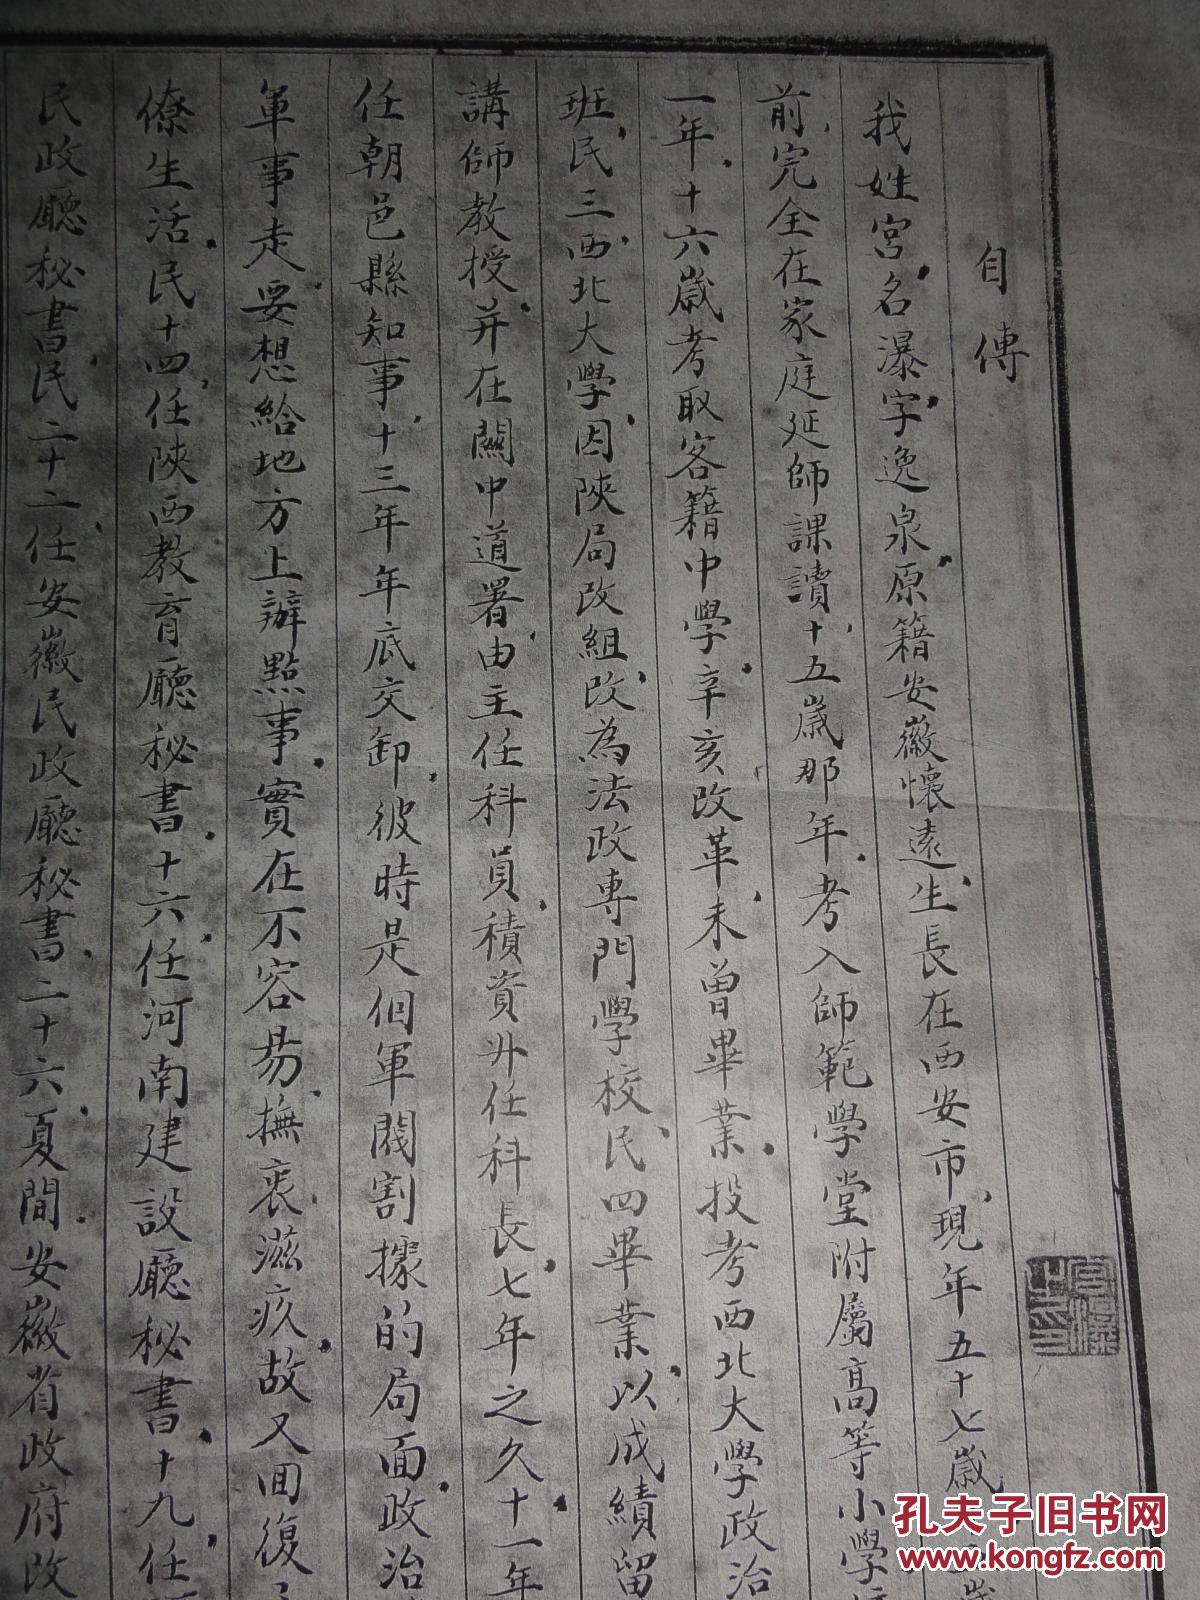 自傳
我姓宮，名瀑字逸泉，原籍安徽懷遠，生長在西安市，現年五十七歲，
前，完全在家庭延師課讀，十五歲那年，考入師範學堂附屬高等小學
一年，十六歲考取客籍中學，辛亥改革，未曾畢業，投考西北大學政治
班，民三西北大學，因陝局改組，改為法政專門學校，民四畢業，以成績留
講師教授，并在關中道署，由主任科員，積資升任科長，七年之久，十一年
任朝邑縣知事，十三年年底交卸，彼時是個軍閥割據的局面，政治
軍事走，要想給地方上辦點事，實在不容易，撫衷滋疚，故又回復
僚生活，民十四，任陝西教育廳秘書，十六，任河南建設廳秘書，十九，任
民政廳秘書，民二十二，任安徽民政廳秘書，二十六，夏間，安徽省政府改
孔夫子旧书网
www.kongfz.com